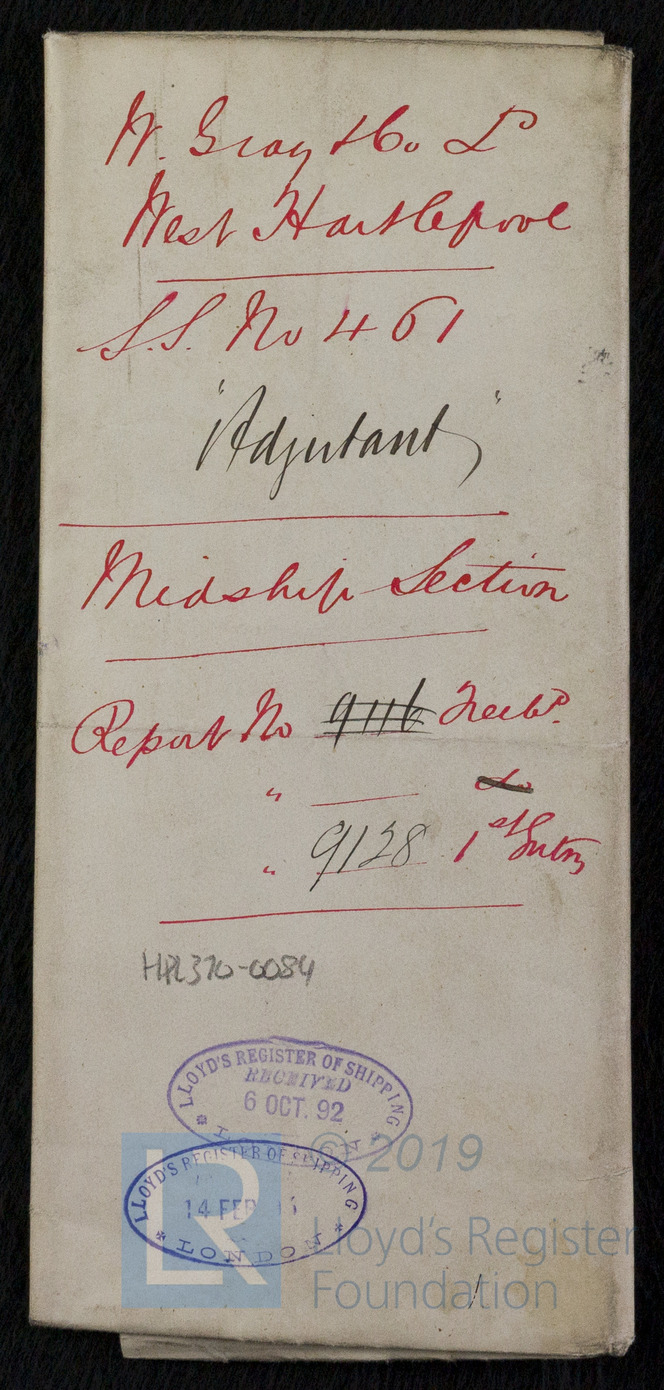 W. Gray & Co Ld
West Hartlepool
S.S. No 461
"Adjutant"
Midship Section
Report No 9116 Freebd.
" do
" 9128 1st Entry
HPL370-0084
LLOYD'S REGISTER OF SHIPPING
RECEIVED
6 OCT. 92
LLOYD'S REGISTER OF SHIPPING
14 FEB
LONDON
© 2019
LR
Lloyd's Register
Foundation